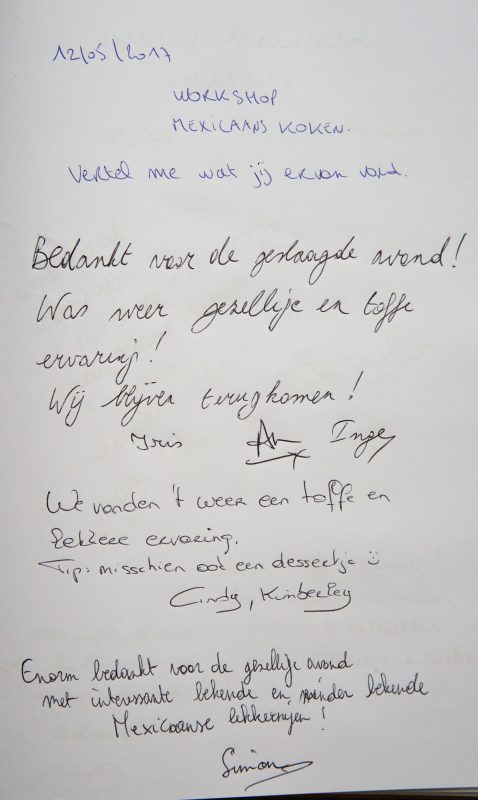 12/05/2017
WORKSHOP
MEXICAANS KOKEN.
Vertel me wat jij ervan vond.
Bedankt voor de geslaagde avond!
Was weer gezellije en toffe
ervaring!
Wij blijven terugkomen!
Iris An Inge
We vonden 't weer een toffe en
lekkere ervaring.
Tip: misschien ook een dessertje ☺
Cindy, Kimberley
Enorm bedankt voor de gezellije avond
met interessante bekende en minder bekende
Mexicaanse lekkernijen!
Simon